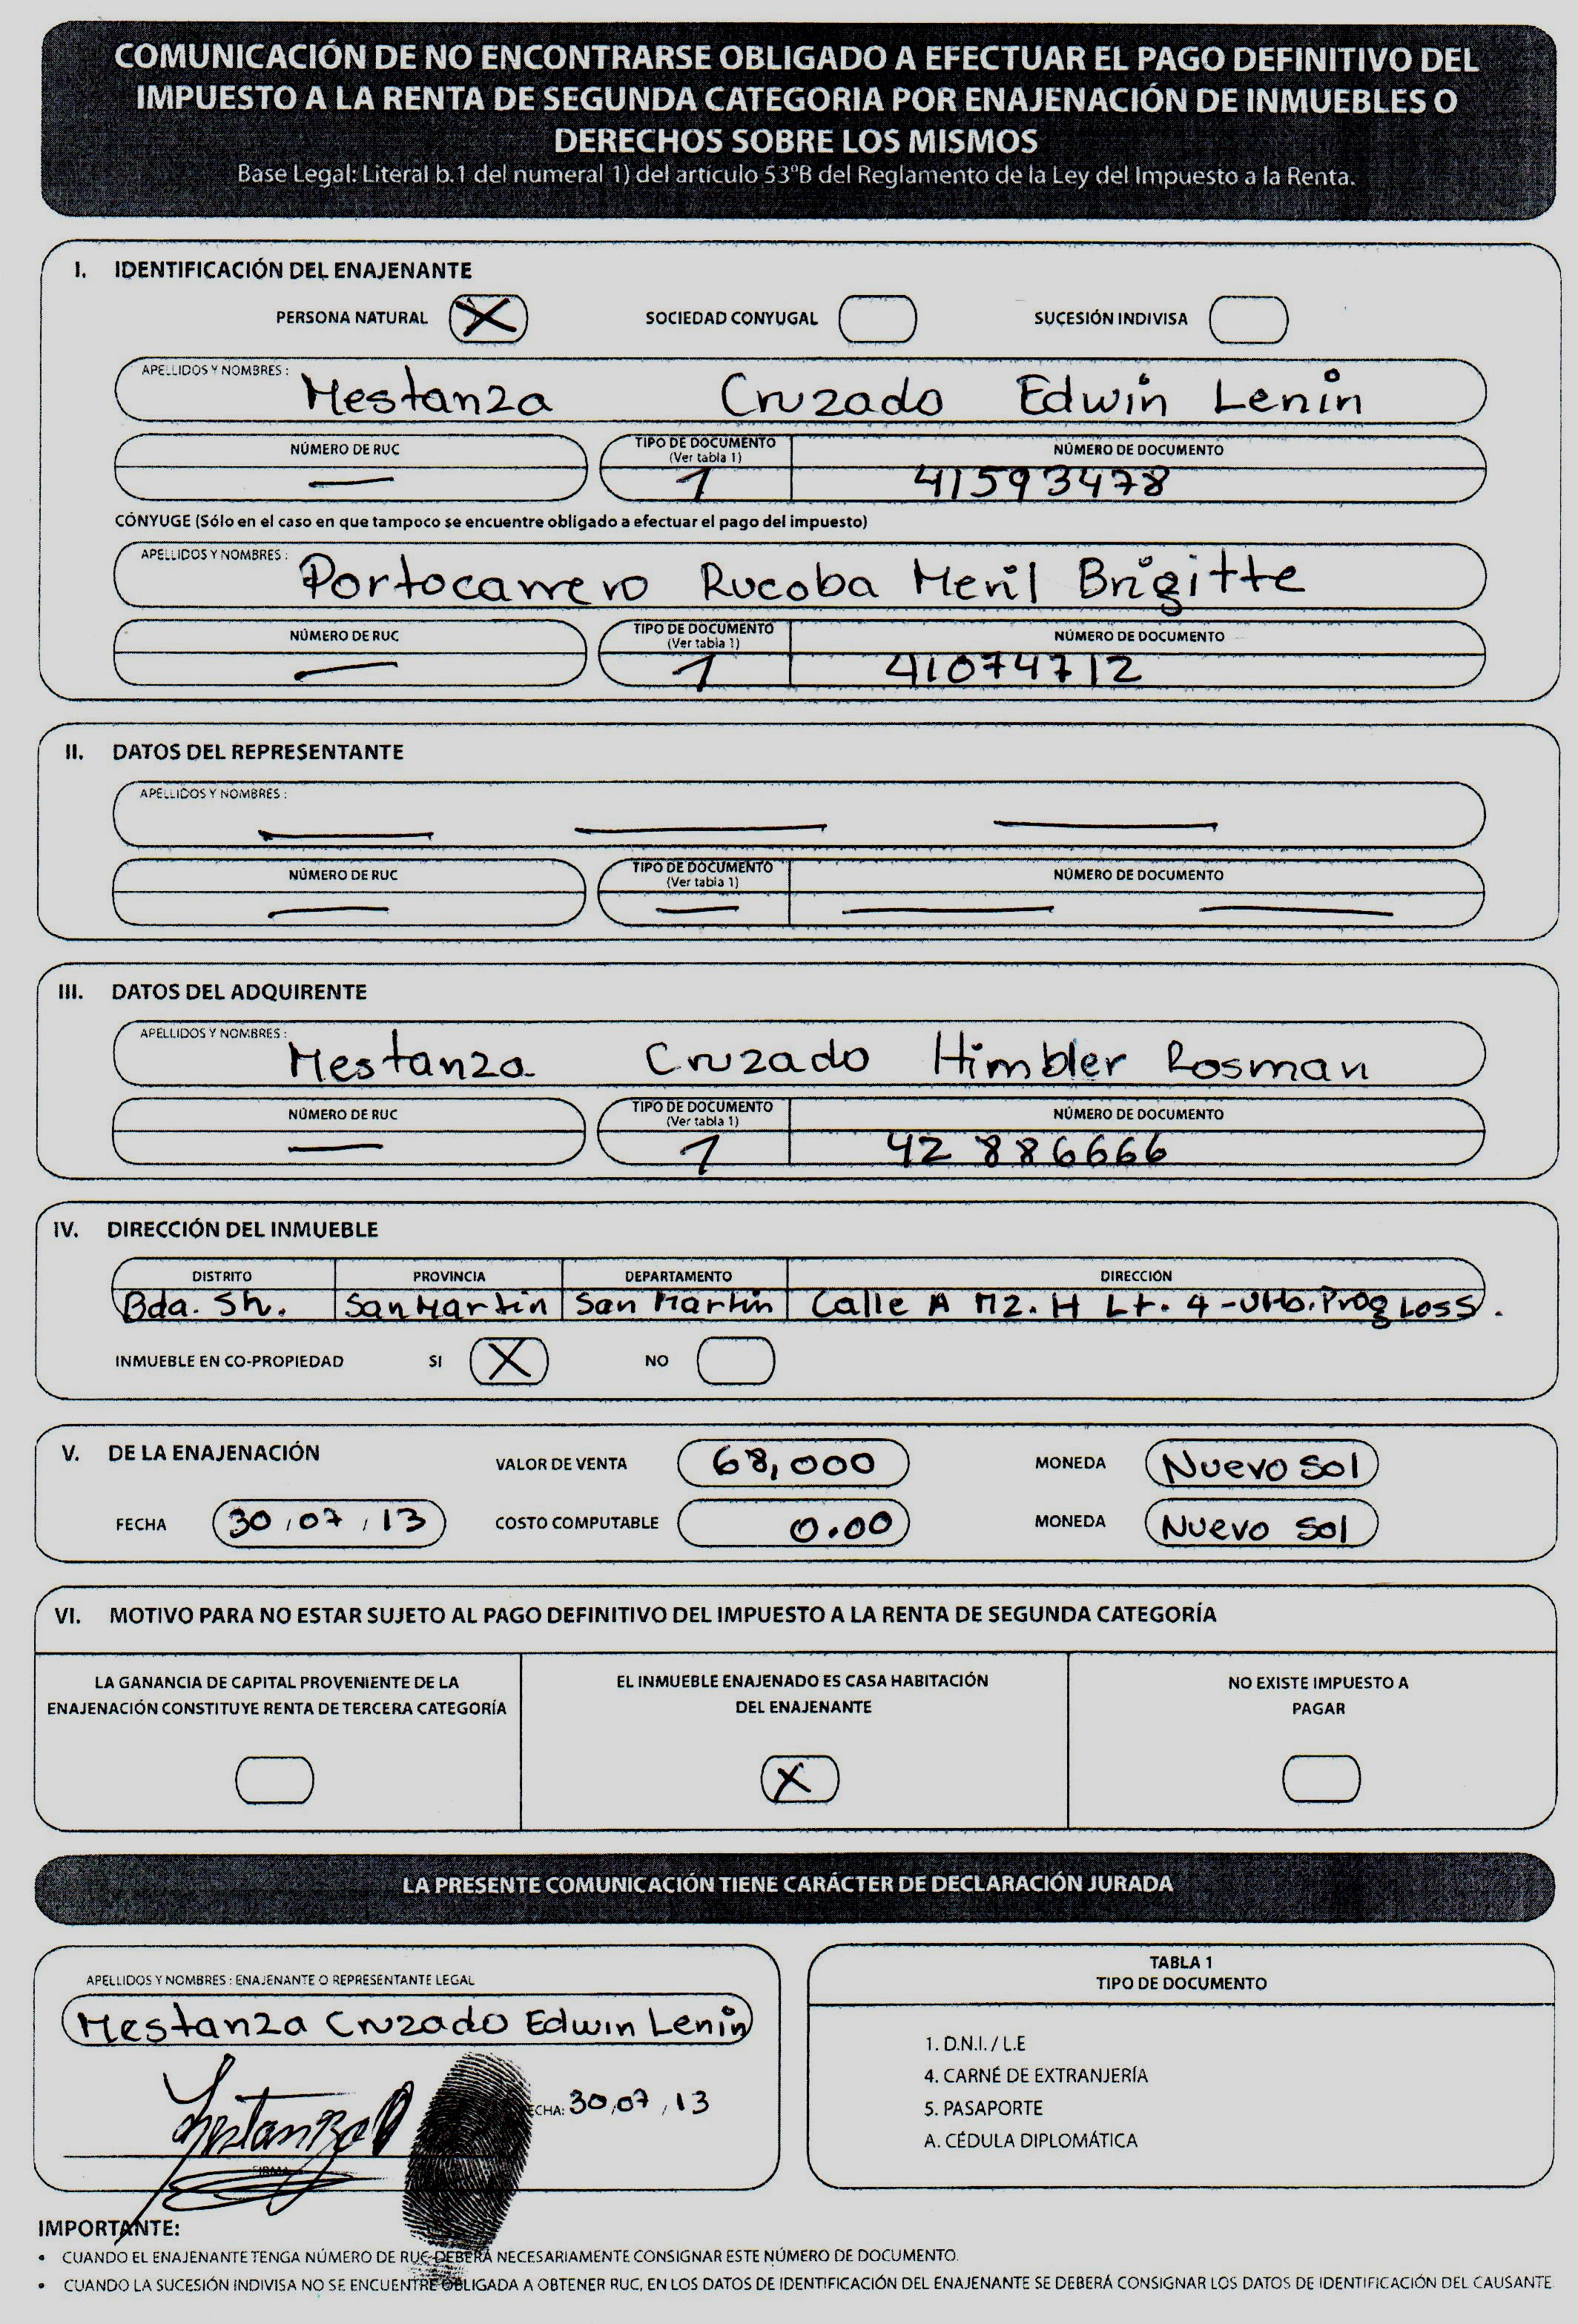 COMUNICACIÓN DE NO ENCONTRARSE OBLIGADO A EFECTUAR EL PAGO DEFINITIVO DEL
IMPUESTO A LA RENTA DE SEGUNDA CATEGORIA POR ENAJENACIÓN DE INMUEBLES O
DERECHOS SOBRE LOS MISMOS
Base Legal: Literal b.1 del numeral 1) del artículo 53°B del Reglamento de la Ley del Impuesto a la Renta.
I. IDENTIFICACIÓN DEL ENAJENANTE
PERSONA NATURAL X SOCIEDAD CONYUGAL SUCESIÓN INDIVISA
APELLIDOS Y NOMBRES : Mestanza Cruzado Edwin Lenin
NÚMERO DE RUC TIPO DE DOCUMENTO (Ver tabla 1) NÚMERO DE DOCUMENTO
— 1 41593478
CÓNYUGE (Sólo en el caso en que tampoco se encuentre obligado a efectuar el pago del impuesto)
APELLIDOS Y NOMBRES : Portocarrero Rucoba Meril Brigitte
NÚMERO DE RUC TIPO DE DOCUMENTO (Ver tabla 1) NÚMERO DE DOCUMENTO
— 1 41074712
II. DATOS DEL REPRESENTANTE
APELLIDOS Y NOMBRES : — — —
NÚMERO DE RUC TIPO DE DOCUMENTO (Ver tabla 1) NÚMERO DE DOCUMENTO
— — — —
III. DATOS DEL ADQUIRENTE
APELLIDOS Y NOMBRES : Mestanza Cruzado Himbler Rosman
NÚMERO DE RUC TIPO DE DOCUMENTO (Ver tabla 1) NÚMERO DE DOCUMENTO
— 1 42886666
IV. DIRECCIÓN DEL INMUEBLE
DISTRITO PROVINCIA DEPARTAMENTO DIRECCIÓN
Bda. Sh. San Martin San Martin Calle A Mz. H Lt. 4 - Urb. Prog Loss.
INMUEBLE EN CO-PROPIEDAD SI X NO
V. DE LA ENAJENACIÓN VALOR DE VENTA 68,000 MONEDA Nuevo Sol
FECHA 30 / 07 / 13 COSTO COMPUTABLE 0.00 MONEDA Nuevo Sol
VI. MOTIVO PARA NO ESTAR SUJETO AL PAGO DEFINITIVO DEL IMPUESTO A LA RENTA DE SEGUNDA CATEGORÍA
LA GANANCIA DE CAPITAL PROVENIENTE DE LA
ENAJENACIÓN CONSTITUYE RENTA DE TERCERA CATEGORÍA
EL INMUEBLE ENAJENADO ES CASA HABITACIÓN
DEL ENAJENANTE
X
NO EXISTE IMPUESTO A
PAGAR
LA PRESENTE COMUNICACIÓN TIENE CARÁCTER DE DECLARACIÓN JURADA
APELLIDOS Y NOMBRES : ENAJENANTE O REPRESENTANTE LEGAL
Mestanza Cruzado Edwin Lenin
FECHA: 30 / 07 / 13
FIRMA
TABLA 1
TIPO DE DOCUMENTO
1. D.N.I. / L.E
4. CARNÉ DE EXTRANJERÍA
5. PASAPORTE
A. CÉDULA DIPLOMÁTICA
IMPORTANTE:
• CUANDO EL ENAJENANTE TENGA NÚMERO DE RUC DEBERÁ NECESARIAMENTE CONSIGNAR ESTE NÚMERO DE DOCUMENTO.
• CUANDO LA SUCESIÓN INDIVISA NO SE ENCUENTRE OBLIGADA A OBTENER RUC, EN LOS DATOS DE IDENTIFICACIÓN DEL ENAJENANTE SE DEBERÁ CONSIGNAR LOS DATOS DE IDENTIFICACIÓN DEL CAUSANTE